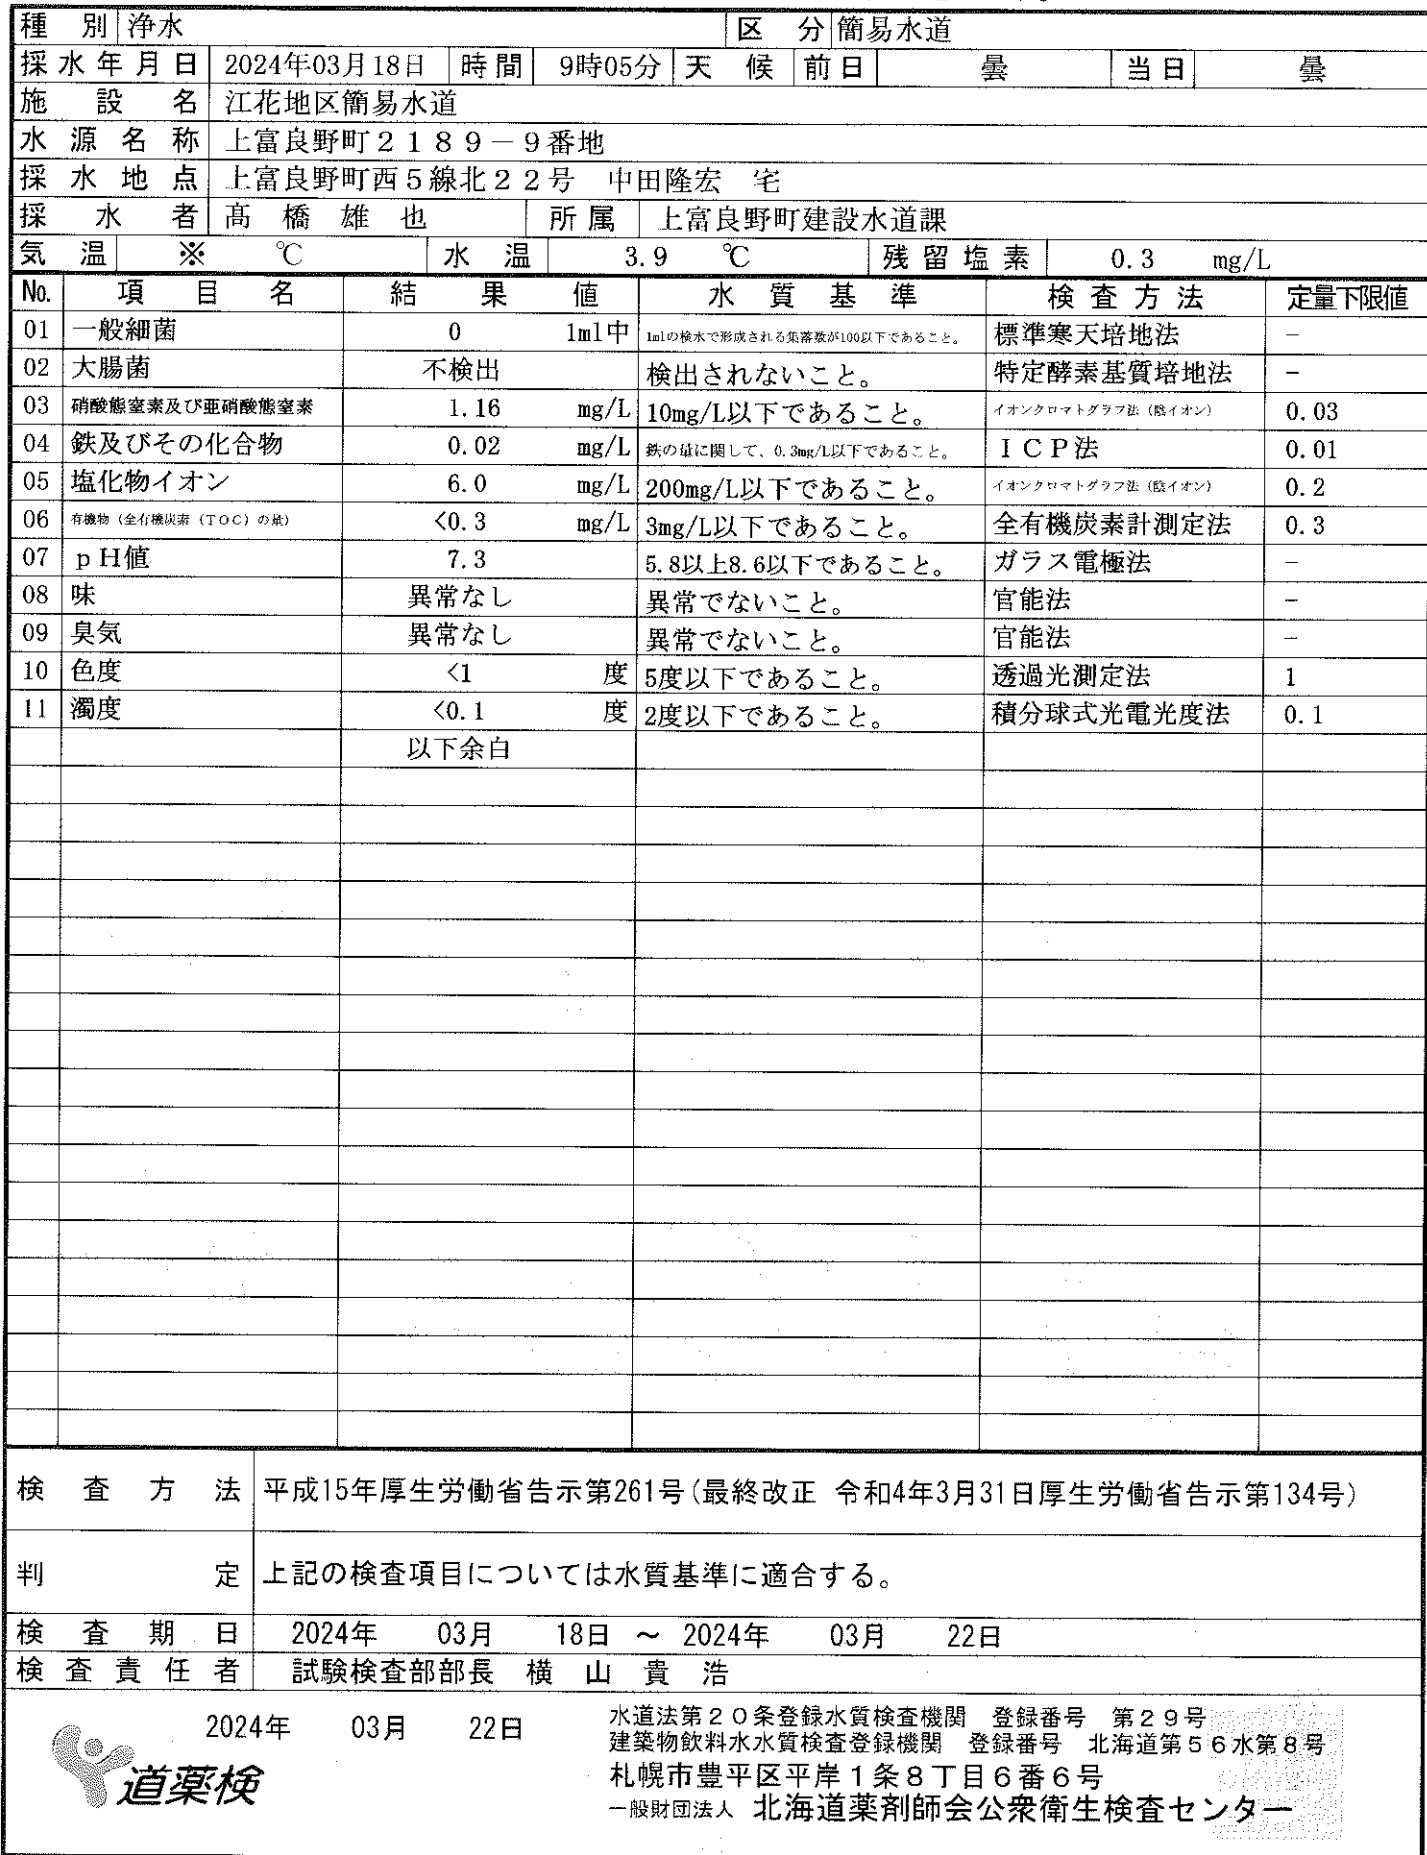 種別 浄水 区分 簡易水道
採水年月日 2024年03月18日 時間 9時05分 天候 前日 曇 当日 曇
施設名 江花地区簡易水道
水源名称 上富良野町2189－9番地
採水地点 上富良野町西5線北22号 中田隆宏 宅
採水者 髙橋雄也 所属 上富良野町建設水道課
気温 ※ ℃ 水温 3.9 ℃ 残留塩素 0.3 mg/L
No. 項目名 結果値 水質基準 検査方法 定量下限値
01 一般細菌 0 1ml中 1mlの検水で形成される集落数が100以下であること。 標準寒天培地法 －
02 大腸菌 不検出 検出されないこと。 特定酵素基質培地法 －
03 硝酸態窒素及び亜硝酸態窒素 1.16 mg/L 10mg/L以下であること。 イオンクロマトグラフ法（陰イオン） 0.03
04 鉄及びその化合物 0.02 mg/L 鉄の量に関して、0.3mg/L以下であること。 ＩＣＰ法 0.01
05 塩化物イオン 6.0 mg/L 200mg/L以下であること。 イオンクロマトグラフ法（陰イオン） 0.2
06 有機物（全有機炭素（TOC）の量） <0.3 mg/L 3mg/L以下であること。 全有機炭素計測定法 0.3
07 ｐH値 7.3 5.8以上8.6以下であること。 ガラス電極法 －
08 味 異常なし 異常でないこと。 官能法 －
09 臭気 異常なし 異常でないこと。 官能法 －
10 色度 <1 度 5度以下であること。 透過光測定法 1
11 濁度 <0.1 度 2度以下であること。 積分球式光電光度法 0.1
以下余白
検査方法 平成15年厚生労働省告示第261号(最終改正 令和4年3月31日厚生労働省告示第134号)
判定 上記の検査項目については水質基準に適合する。
検査期日 2024年 03月 18日 ～ 2024年 03月 22日
検査責任者 試験検査部部長 横山貴浩
2024年 03月 22日
道薬検
水道法第２０条登録水質検査機関 登録番号 第２９号
建築物飲料水水質検査登録機関 登録番号 北海道第５６水第８号
札幌市豊平区平岸１条８丁目６番６号
一般財団法人 北海道薬剤師会公衆衛生検査センター